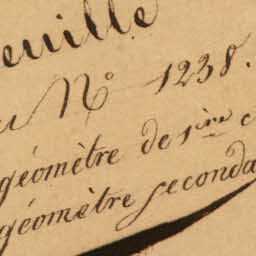 euille
N° 1238.
géomètre de 1ère c
géomètre seconda